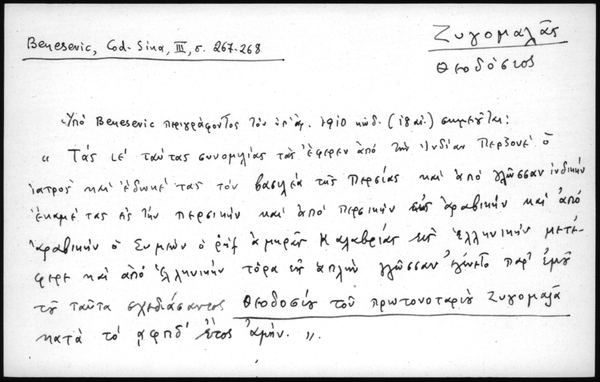 Benesevic, Cod. Sina, III, σ. 267-268
Ζυγομαλᾶς
Θεοδόσιος
Ὑπὸ Benesevic περιγράφοντος τὸν ὑπ' ἀρ. 1910 κώδ. (ιβ αἰ.) σημειοῦται:
« Τὰς ιε´ ταύτας συνομιλίας τὰς ἔφερεν ἀπὸ τὴν Ἰνδίαν Περζουὲ ὁ
ἰατρὸς καὶ ἔδωκέ τας τὸν βασιλέα τῆς Περσίας καὶ ἀπὸ γλῶσσαν ἰνδικὴν
ἔκαμέ τας εἰς τὴν περσικὴν καὶ ἀπὸ περσικὴν εἰς ἀραβικὴν καὶ ἀπὸ
ἀραβικὴν ὁ Συμεὼν ὁ ἀμηρᾶς Καλαβρίας εἰς ἑλληνικὴν μετέ-
φερε καὶ ἀπὸ ἑλληνικὴν τώρα εἰς ἁπλῆν γλῶσσαν ἐγένετο παρ' ἐμοῦ
τοῦ ταῦτα σχεδιάσαντος Θεοδοσίου τοῦ πρωτονοταρίου Ζυγομαλᾶ
κατὰ τὸ ͵αφπδ´ ἔτος ἀμήν. ».